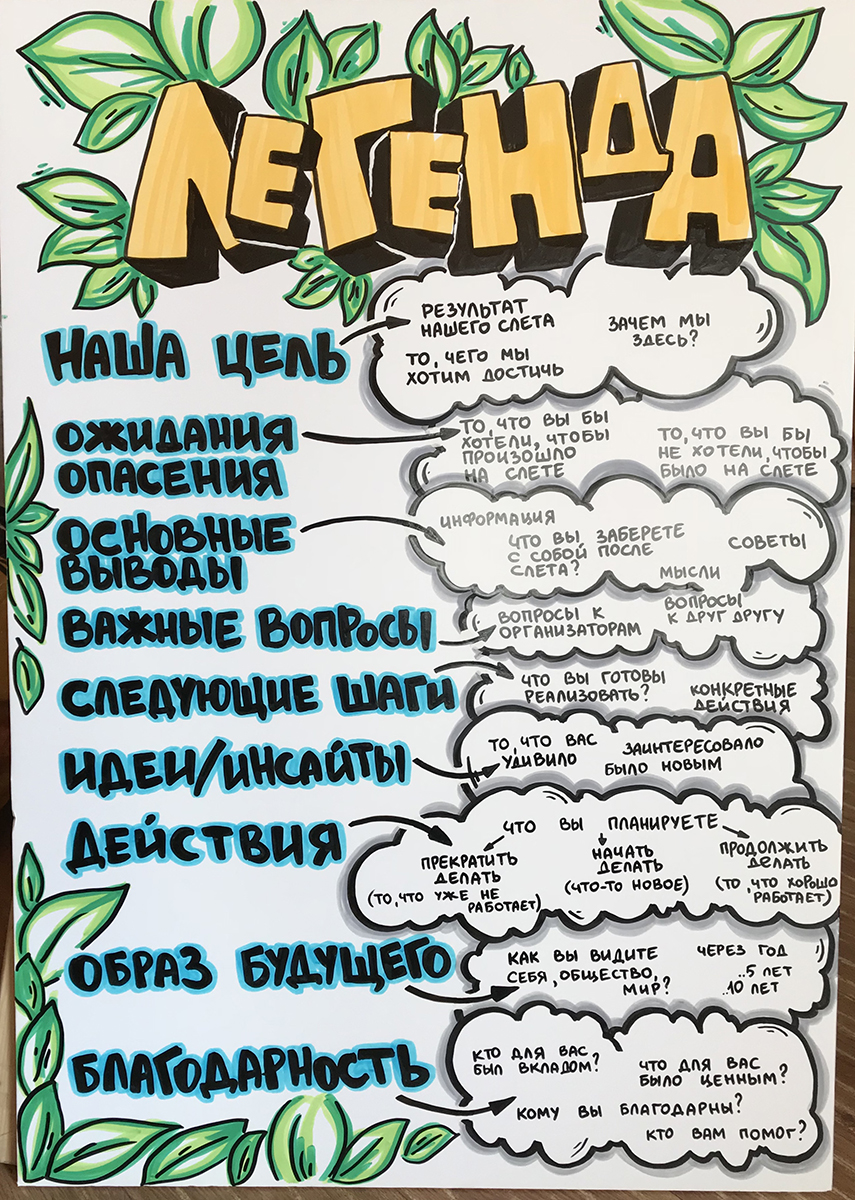 ЛЕГЕНДА
НАША ЦЕЛЬ
РЕЗУЛЬТАТ
НАШЕГО СЛЕТА
ТО, ЧЕГО МЫ
ХОТИМ ДОСТИЧЬ
ЗАЧЕМ МЫ
ЗДЕСЬ?
ОЖИДАНИЯ
ОПАСЕНИЯ
ТО, ЧТО ВЫ БЫ
ХОТЕЛИ, ЧТОБЫ
ПРОИЗОШЛО
НА СЛЕТЕ
ТО, ЧТО ВЫ БЫ
НЕ ХОТЕЛИ, ЧТОБЫ
БЫЛО НА СЛЕТЕ
ОСНОВНЫЕ
ВЫВОДЫ
ИНФОРМАЦИЯ
ЧТО ВЫ ЗАБЕРЕТЕ
С СОБОЙ ПОСЛЕ
СЛЕТА?
МЫСЛИ
СОВЕТЫ
ВАЖНЫЕ ВОПРОСЫ
ВОПРОСЫ К
ОРГАНИЗАТОРАМ
ВОПРОСЫ
К ДРУГ ДРУГУ
СЛЕДУЮЩИЕ ШАГИ
ЧТО ВЫ ГОТОВЫ
РЕАЛИЗОВАТЬ?
КОНКРЕТНЫЕ
ДЕЙСТВИЯ
ИДЕИ/ИНСАЙТЫ
ТО, ЧТО ВАС
УДИВИЛО
ЗАИНТЕРЕСОВАЛО
БЫЛО НОВЫМ
ДЕЙСТВИЯ
ЧТО ВЫ ПЛАНИРУЕТЕ
ПРЕКРАТИТЬ
ДЕЛАТЬ
(ТО, ЧТО УЖЕ НЕ
РАБОТАЕТ)
НАЧАТЬ
ДЕЛАТЬ
(ЧТО-ТО НОВОЕ)
ПРОДОЛЖИТЬ
ДЕЛАТЬ
(ТО, ЧТО ХОРОШО
РАБОТАЕТ)
ОБРАЗ БУДУЩЕГО
КАК ВЫ ВИДИТЕ
СЕБЯ, ОБЩЕСТВО,
МИР?
ЧЕРЕЗ ГОД
..5 ЛЕТ
..10 ЛЕТ
БЛАГОДАРНОСТЬ
КТО ДЛЯ ВАС
БЫЛ ВКЛАДОМ?
ЧТО ДЛЯ ВАС
БЫЛО ЦЕННЫМ?
КОМУ ВЫ БЛАГОДАРНЫ?
КТО ВАМ ПОМОГ?